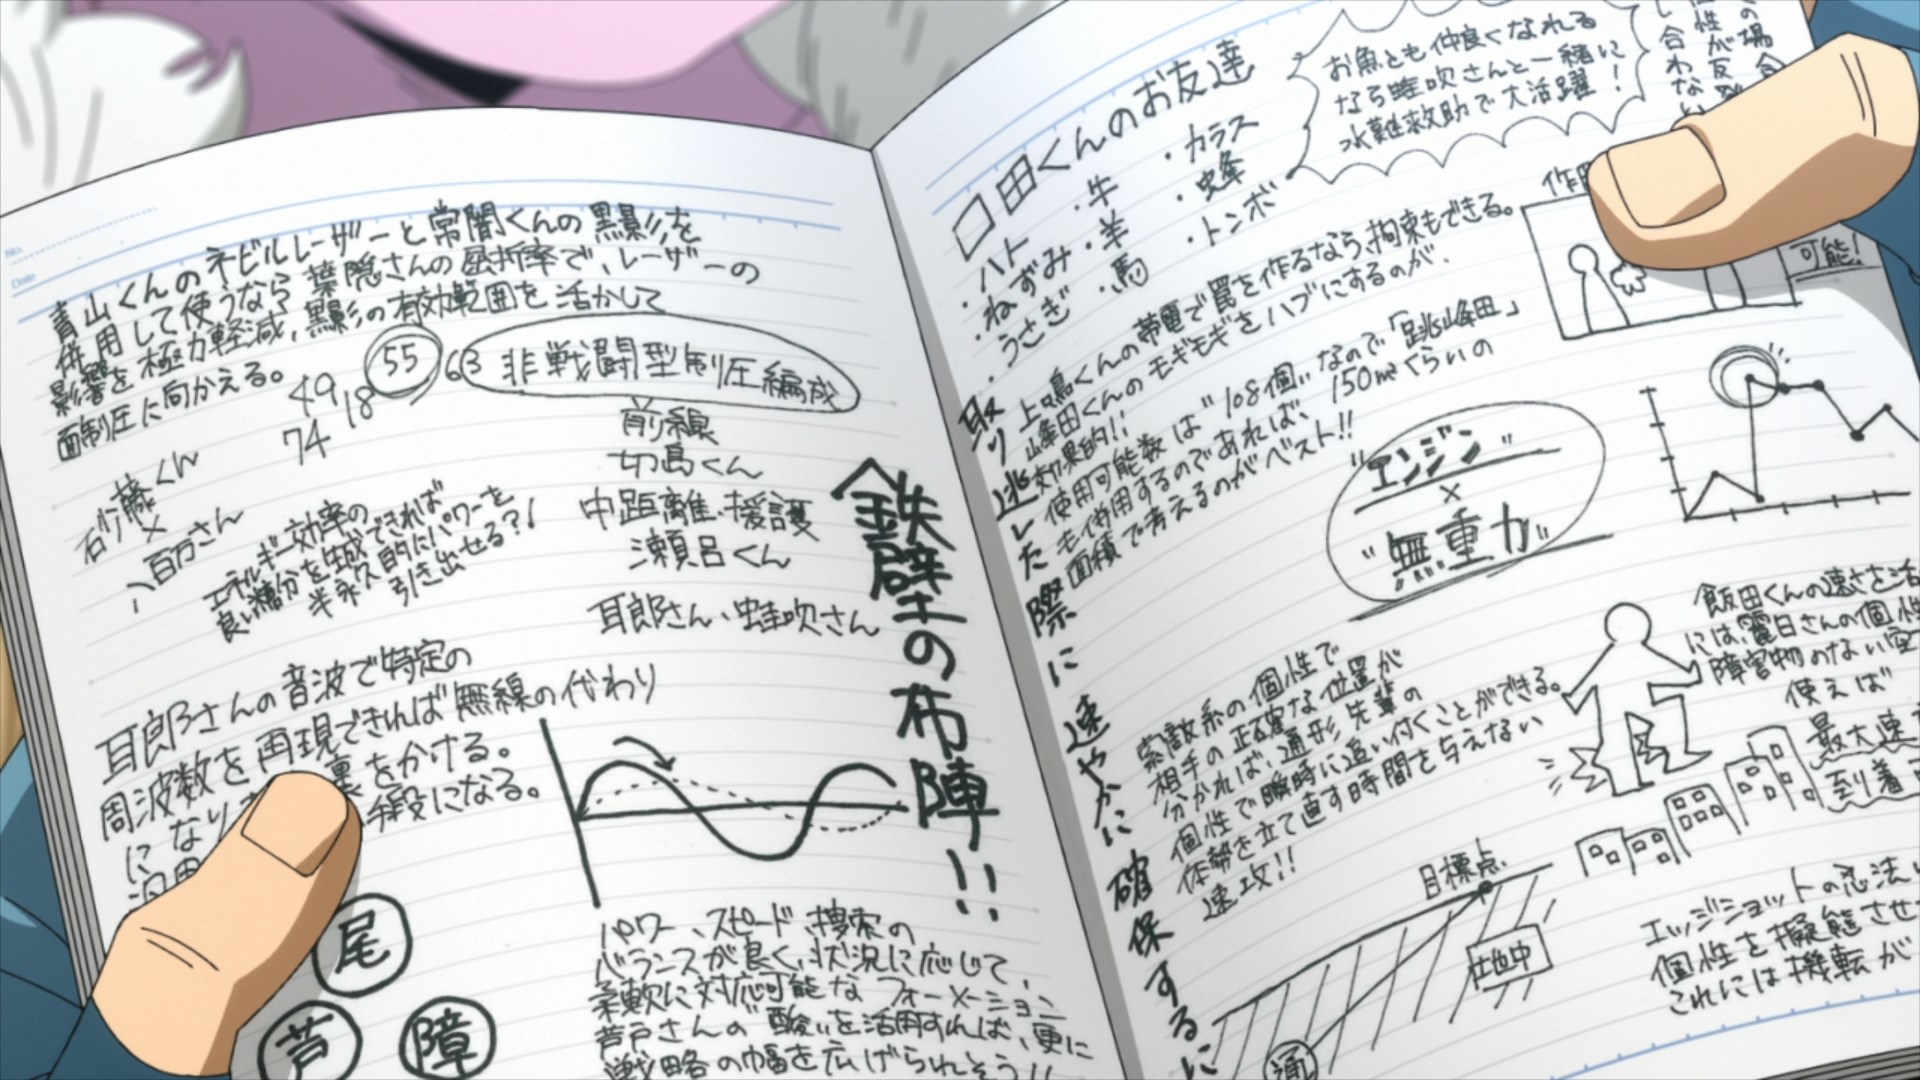 青山くんのネビルレーザーと常闇くんの黒影を
併用して使うなら葉隠さんの屈折率で、レーザーの
影響を極力軽減、黒影の有効範囲を活かして
面制圧に向かえる。
49 18 55 63
74
非戦闘型制圧編成
前線
切島くん
中距離、援護
瀬呂くん
耳郎さん、蛙吹さん
鉄壁の布陣!!
砂藤くん
×
八百万さん
エネルギー効率の
良い糖分を生成できれば
半永久的にパワーを
引き出せる?!
耳郎さんの音波で特定の
周波数を再現できれば無線の代わり
になり 裏をかける。
手段になる。
尾
芦
障
パワー、スピード、捜索の
バランスが良く、状況に応じて、
柔軟に対応可能なフォーメーション
芦戸さんの"酸"を活用すれば、更に
戦略の幅を広げられそう!!
口田くんのお友達
・ハト
・ねずみ
・うさぎ
・牛
・羊
・馬
・カラス
・蜂
・トンボ
お魚とも仲良くなれる
なら蛙吹さんと一緒に
水難救助で大活躍!
の場合
個性が反発
し合わない
可能!
取り逃した際に速やかに確保するに
上鳴くんの帯電で罠を作るなら、拘束もできる。
峰田くんのモギモギをハブにするのが、
効果的!!
使用可能数は"108個"なので「跳峰田」
も併用するのであれば、150m²くらいの
面積で考えるのがベスト!!
"エンジン"
×
"無重力"
索敵系の個性で
相手の正確な位置が
分かれば、通形先輩の
個性で瞬時に追い付くことができる。
体勢を立て直す時間を与えない
速攻!!
飯田くんの速さを活
には、麗日さんの個性
障害物のない空
使えば
最大速
到着
目標点
地中
通
エッジショットの忍法
個性を擬態させ
これには機転が